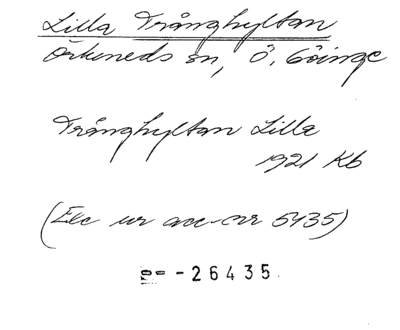 Lilla Trånghyltan
Örkeneds sn, Ö. Göinge
Trånghyltan Lilla
1921 Kb
(Exc ur acc-nr 5435)
-26435.